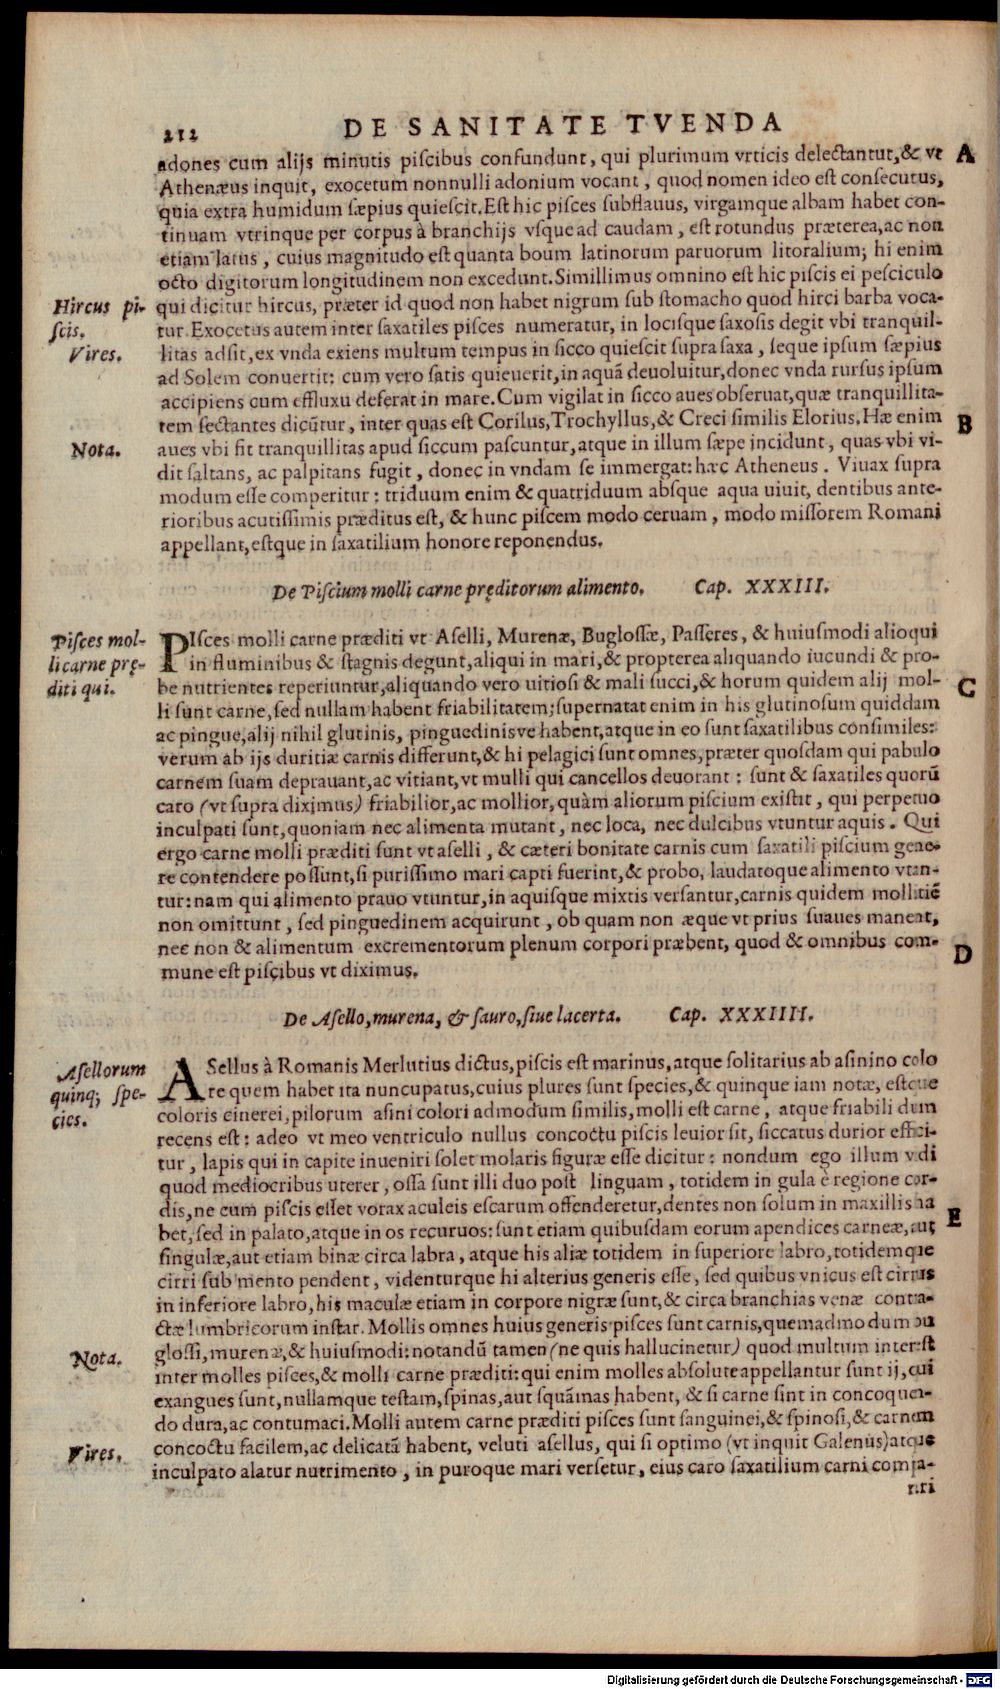 212 DE SANITATE TVENDA
adones cum alijs minutis piſcibus confundunt, qui plurimum vrticis delectantur,& vt A
Athenæus inquit, exocetum nonnulli adonium vocant, quod nomen ideo eſt conſecutus,
quia extra humidum ſæpius quieſcit. Eſt hic piſces ſubflauus, virgamque albam habet con-
tinuam vtrinque per corpus à branchijs vſque ad caudam, eſt rotundus præterea, ac non
etiam latus, cuius magnitudo eſt quanta boum latinorum paruorum litoralium; hi enim
octo digitorum longitudinem non excedunt. Simillimus omnino eſt hic piſcis ei peſciculo
Hircus pi-
ſcis.
qui dicitur hircus, præter id quod non habet nigrum ſub ſtomacho quod hirci barba voca-
tur. Exocetus autem inter ſaxatiles piſces numeratur, in lociſque ſaxoſis degit vbi tranquil-
Vires.
litas adſit, ex vnda exiens multum tempus in ſicco quieſcit ſupra ſaxa, ſeque ipſum ſæpius
ad Solem conuertit: cum vero ſatis quieuerit, in aquã deuoluitur, donec vnda rurſus ipſum
accipiens cum effluxu deferat in mare. Cum vigilat in ſicco aues obſeruat, quæ tranquillita-
tem ſectantes dicũtur, inter quas eſt Corilus, Trochyllus, & Creci ſimilis Elorius. Hæ enim B
Nota.
aues vbi fit tranquillitas apud ſiccum paſcuntur, atque in illum ſæpe incidunt, quas vbi vi-
dit ſaltans, ac palpitans fugit, donec in vndam ſe immergat: hæc Atheneus. Viuax ſupra
modum eſſe comperitur: triduum enim & quatriduum abſque aqua uiuit, dentibus ante-
rioribus acutiſſimis præditus eſt, & hunc piſcem modo ceruam, modo miſſorem Romani
appellant, eſtque in ſaxatilium honore reponendus.
De Piſcium molli carne pręditorum alimento. Cap. XXXIII.
Piſces mol-
li carne prę-
diti qui.
PIſces molli carne præditi vt Aſelli, Murenæ, Bugloſſæ, Paſſeres, & huiuſmodi alioqui
in fluminibus & ſtagnis degunt, aliqui in mari, & propterea aliquando iucundi & pro-
be nutrientes reperiuntur, aliquando vero uitioſi & mali ſucci, & horum quidem alij mol- C
li ſunt carne, ſed nullam habent friabilitatem; ſupernatat enim in his glutinoſum quiddam
ac pingue, alij nihil glutinis, pinguedinisve habent, atque in eo ſunt ſaxatilibus conſimiles:
verum ab ijs duritiæ carnis differunt, & hi pelagici ſunt omnes, præter quoſdam qui pabulo
carnem ſuam deprauant, ac vitiant, vt mulli qui cancellos deuorant: ſunt & ſaxatiles quorũ
caro (vt ſupra diximus) friabilior, ac mollior, quàm aliorum piſcium exiſtit, qui perpetuo
inculpati ſunt, quoniam nec alimenta mutant, nec loca, nec dulcibus vtuntur aquis. Qui
ergo carne molli præditi ſunt vt aſelli, & cæteri bonitate carnis cum ſaxatili piſcium gene-
re contendere poſſunt, ſi puriſſimo mari capti fuerint, & probo, laudatoque alimento vtan-
tur: nam qui alimento prauo vtuntur, in aquiſque mixtis verſantur, carnis quidem mollitiẽ
non omittunt, ſed pinguedinem acquirunt, ob quam non æque vt prius ſuaues maneat,
nec non & alimentum excrementorum plenum corpori præbent, quod & omnibus com- D
mune eſt piſcibus vt diximus.
De Aſello, murena, & ſauro, ſiue lacerta. Cap. XXXIIII.
Aſellorum
quinq; ſpe-
cies.
ASellus à Romanis Merlutius dictus, piſcis eſt marinus, atque ſolitarius ab aſinino colo
re quem habet ita nuncupatus, cuius plures ſunt ſpecies, & quinque iam notæ, eſtque
coloris einerei, pilorum aſini colori admodum ſimilis, molli eſt carne, atque friabili dum
recens eſt: adeo vt meo ventriculo nullus concoctu piſcis leuior ſit, ſiccatus durior effici-
tur, lapis qui in capite inueniri ſolet molaris figuræ eſſe dicitur: nondum ego illum vidi
quod mediocribus uterer, oſſa ſunt illi duo poſt linguam, totidem in gula è regione cor-
dis, ne cum piſcis eſſet vorax aculeis eſcarum offenderetur, dentes non ſolum in maxillis ha E
bet, ſed in palato, atque in os recuruos: ſunt etiam quibuſdam eorum apendices carneæ, aut
ſingulæ, aut etiam binæ circa labra, atque his aliæ totidem in ſuperiore labro, totidemque
cirri ſub mento pendent, videnturque hi alterius generis eſſe, ſed quibus vnicus eſt cirrus
in inferiore labro, his maculæ etiam in corpore nigræ ſunt, & circa branchias venæ contra-
ctæ lumbricorum inſtar. Mollis omnes huius generis piſces ſunt carnis, quemadmodum bu
Nota.
gloſſi, murenæ, & huiuſmodi: notandũ tamen (ne quis hallucinetur) quod multum intereſt
inter molles piſces, & molli carne præditi: qui enim molles abſolute appellantur ſunt ij, cui
exangues ſunt, nullamque teſtam, ſpinas, aut ſquãmas habent, & ſi carne ſint in concoquen-
do dura, ac contumaci. Molli autem carne præditi piſces ſunt ſanguinei, & ſpinoſi, & carnem
Vires.
concoctu facilem, ac delicatã habent, veluti aſellus, qui ſi optimo (vt inquit Galenus) atque
inculpato alatur nutrimento, in puroque mari verſetur, eius caro ſaxatilium carni compa-
rari
Digitalisierung gefördert durch die Deutsche Forschungsgemeinschaft - DFG